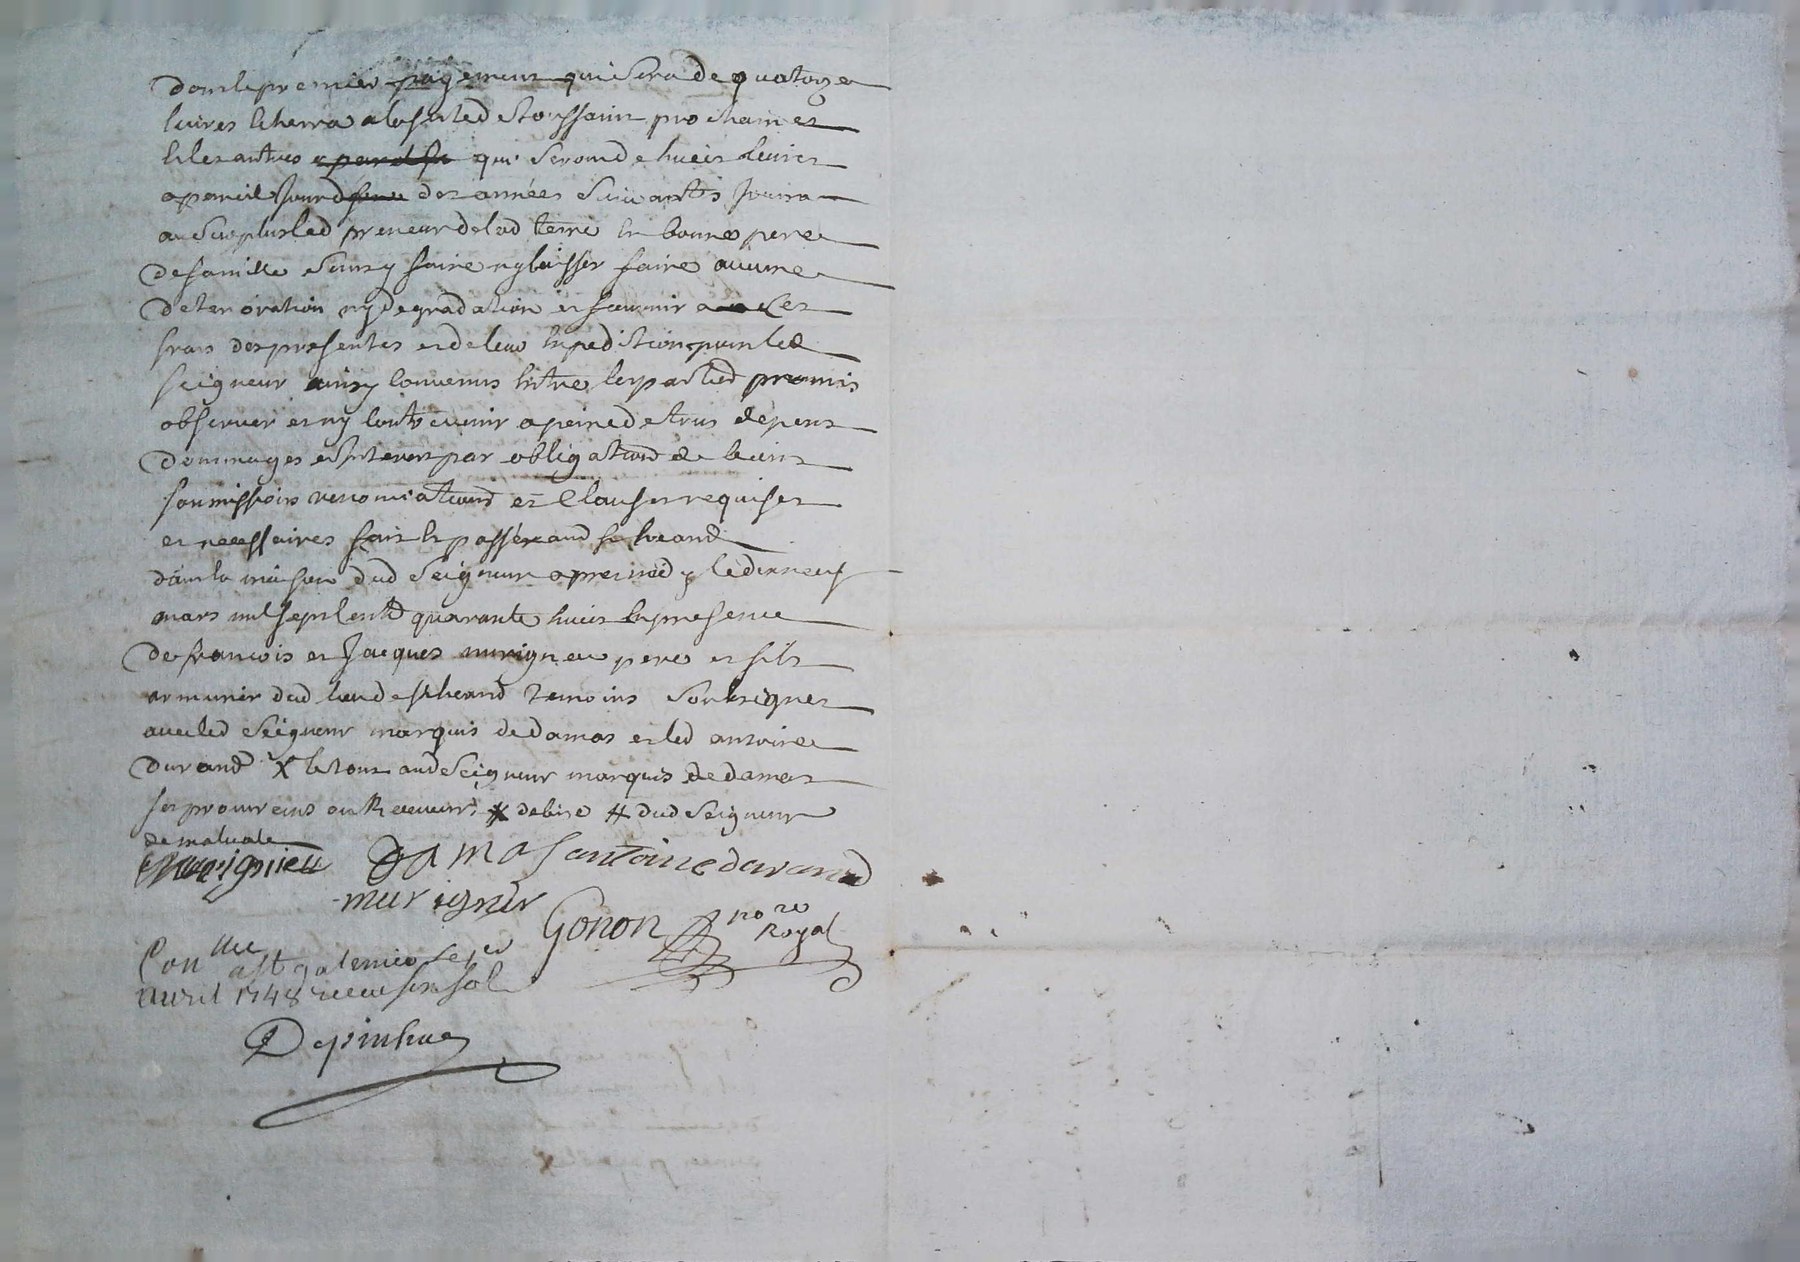 dont le premier payement qui sera de quatorze
livres echerra a la feste de toussaint prochain et
les autres qui seront de huict livres
a pareil jour des années suivantes jouira
au surplus led preneur de lad terre en bon pere
de famille sans y faire ny laisser faire aucune
deterioration ny degradation et fournir a ses
frais des presentes et de leur expedition pour led
seigneur ainsy convenus entre les parties promis
observer et ny contrevenir a peine de tous depens
dommages et interets par obligations de biens
soumissions renonciations et clauses requises
et necessaires fait et passé aud
dans la maison dud seigneur apres midy le dix neuf
mars mil sept cents quarante huict en presence
de francois et Jacques murigneu pere et fils
armurier dud lieu de temoins soubsignes
avec led seigneur marquis de damas et led antoine
durand X le tout aud seigneur marquis de damas
ses procureurs ou Receveurs X debise # dud seigneur
de malvale
murignieu Damas antoine durand
murignir
Gonon no re Royal
Con lle a st galemier le 1er
avril 1748 receu six sol
Depinhac